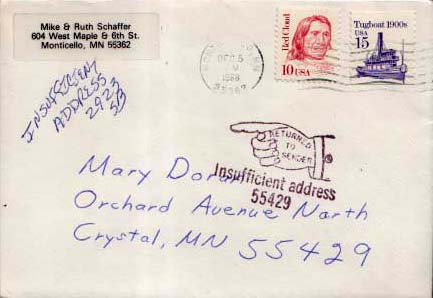 Mike & Ruth Schaffer
604 West Maple & 6th St.
Monticello, MN 55362
INSUFFICIENT
ADDRESS
2923
DEC 5
1988
Red Cloud
10 USA
Tugboat 1900s
USA
15
RETURNED
TO
SENDER
Insufficient address
55429
Mary Doran
Orchard Avenue North
Crystal, MN 55429